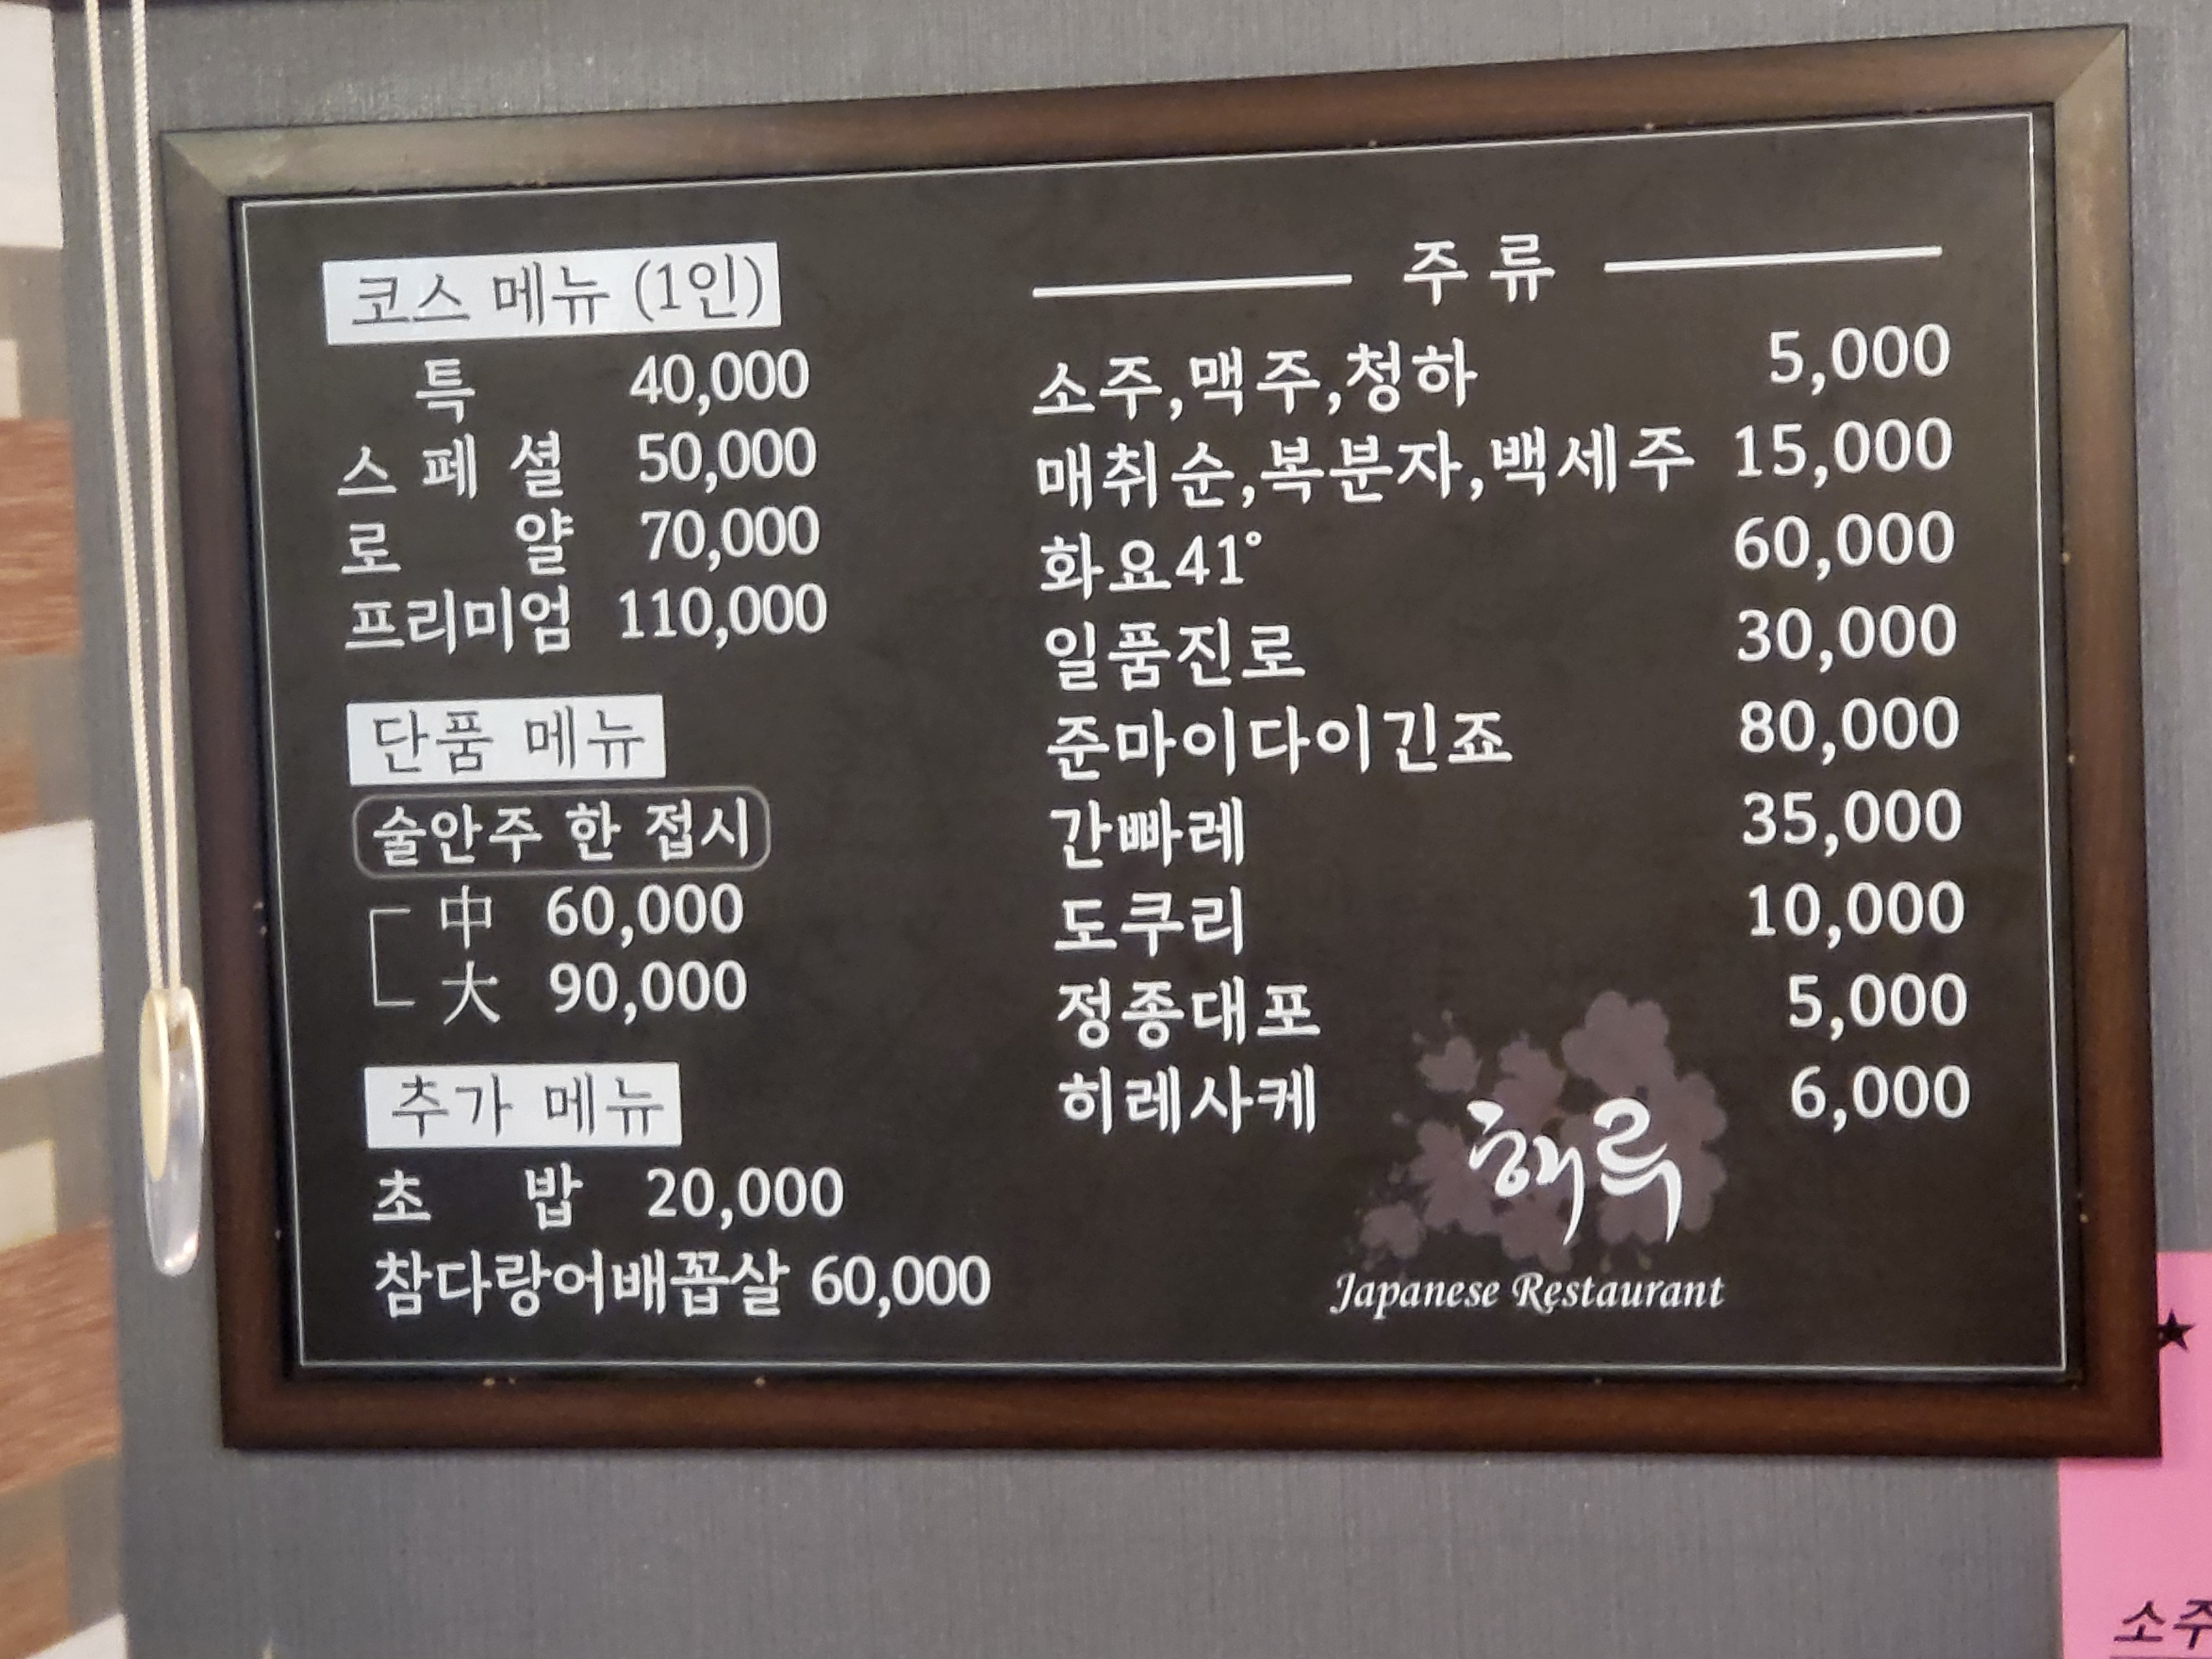 코스 메뉴 (1인)
특 40,000
스페셜 50,000
로얄 70,000
프리미엄 110,000
단품 메뉴
술안주 한 접시
中 60,000
大 90,000
추가 메뉴
초밥 20,000
참다랑어배꼽살 60,000
주류
소주,맥주,청하 5,000
매취순,복분자,백세주 15,000
화요41° 60,000
일품진로 30,000
준마이다이긴죠 80,000
간빠레 35,000
도쿠리 10,000
정종대포 5,000
히레사케 6,000
해루
Japanese Restaurant
★
소주